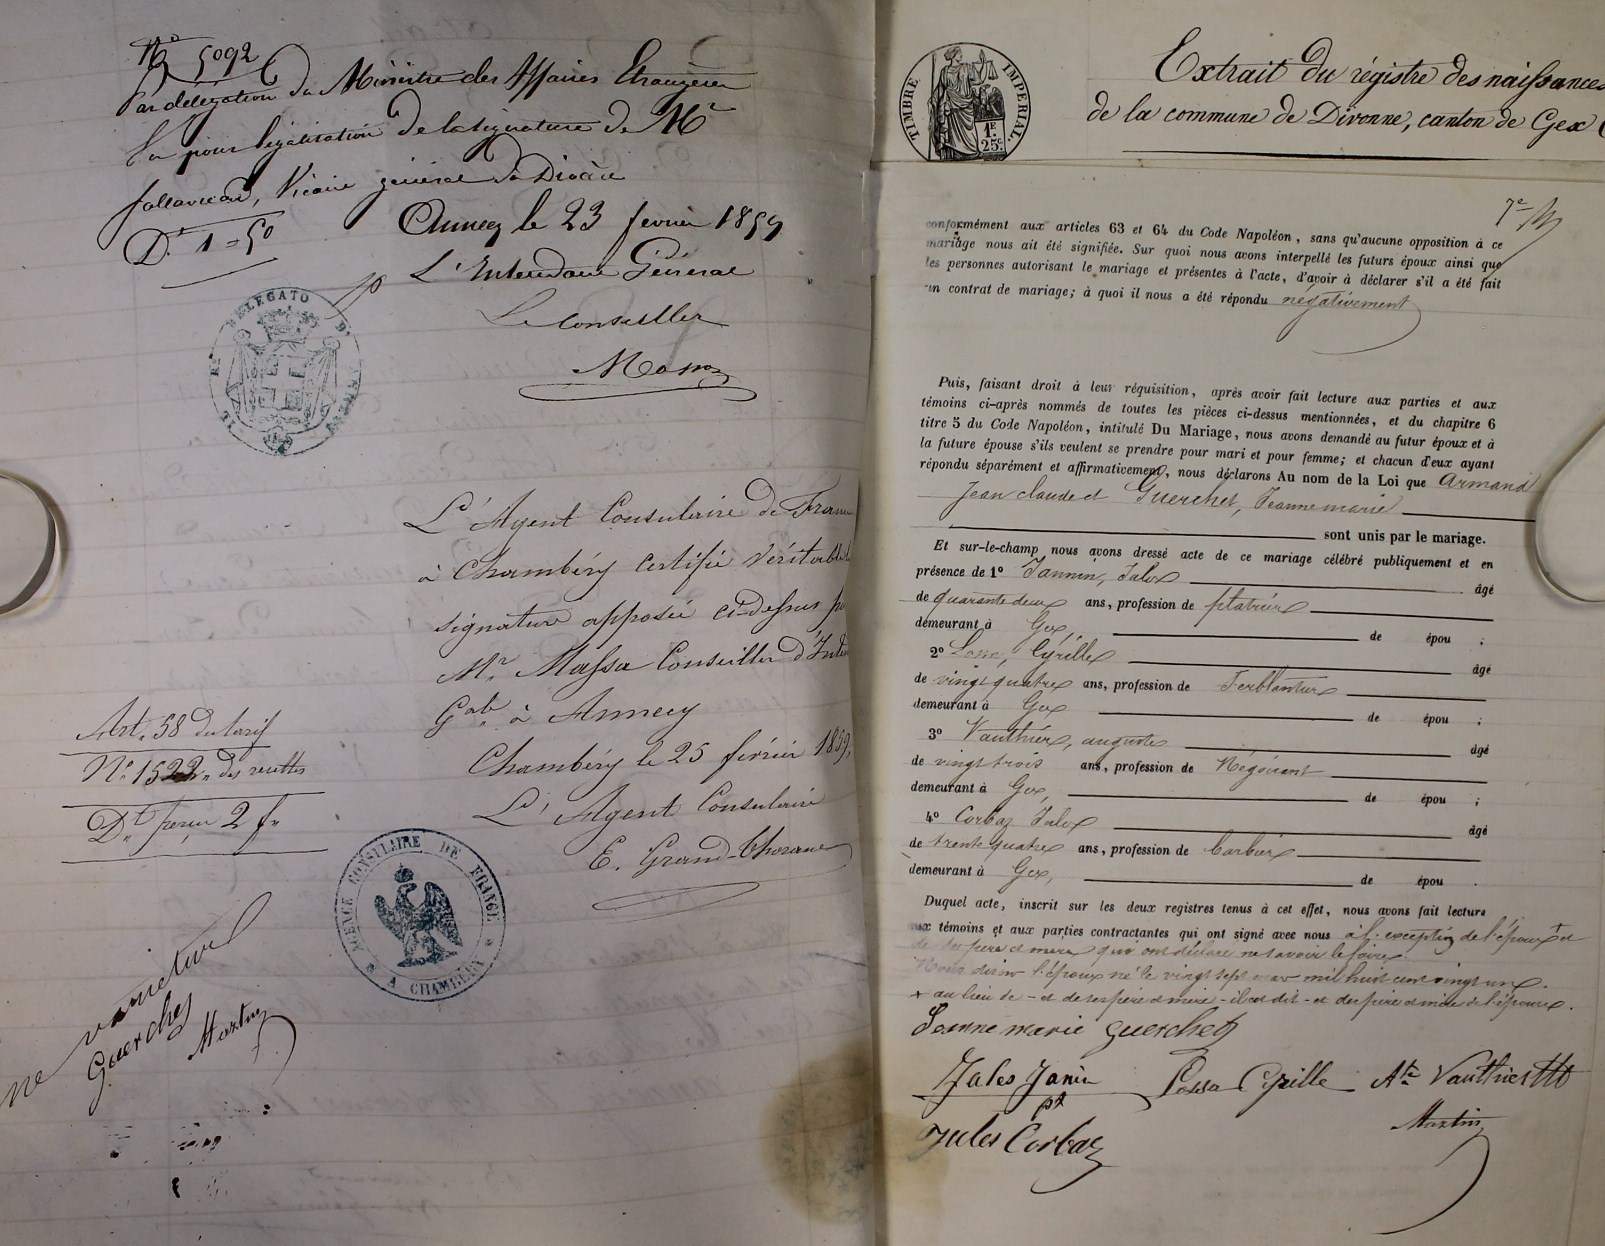 N.° 5092
Par délégation du Ministre des Affaires Etrangères
Vu pour légalisation de la signature de Mr
Vicaire général du Diocèse
D.t 1=50
Annecy le 23 fevrier 1859
L'Intendant Général
Le Conseiller
Massa
L'Agent Consulaire de France
à Chambéry certifie véritable la
signature apposée ci-dessus par
Mr. Massa Conseiller d'Inten
Gale à Annecy
Chambéry le 25 février 1859.
L'Agent Consulaire
E. Grand-Thorane
Art. 58 du tarif
N.° 1522 des recettes
D.t perçu 2 f.
AGENCE CONSULAIRE DE FRANCE
A CHAMBÉRY
ne varietur
Guerchet
Martin
TIMBRE IMPERIAL
1F.
25c.
Extrait du régistre des naissances
de la commune de Divonne, canton de Gex
7e
conformément aux articles 63 et 64 du Code Napoléon, sans qu'aucune opposition à ce
mariage nous ait été signifiée. Sur quoi nous avons interpellé les futurs époux ainsi que
les personnes autorisant le mariage et présentes à l'acte, d'avoir à déclarer s'il a été fait
un contrat de mariage; à quoi il nous a été répondu négativement
Puis, faisant droit à leur réquisition, après avoir fait lecture aux parties et aux
témoins ci-après nommés de toutes les pièces ci-dessus mentionnées, et du chapitre 6
titre 5 du Code Napoléon, intitulé Du Mariage, nous avons demandé au futur époux et à
la future épouse s'ils veulent se prendre pour mari et pour femme; et chacun d'eux ayant
répondu séparément et affirmativement, nous déclarons Au nom de la Loi que Armand
Jean claude et Guerchet, Jeanne marie
sont unis par le mariage.
Et sur-le-champ nous avons dressé acte de ce mariage célébré publiquement et en
présence de 1° Jannin, Jules âgé
de quarante deux ans, profession de platrier
demeurant à Gex, de épou ;
2° Cyrille âgé
de vingt quatre ans, profession de Ferblantier
demeurant à Gex de épou ;
3° Vauthier, auguste âgé
de vingt trois ans, profession de Négociant
demeurant à Gex, de épou ;
4° Corbaz Jules âgé
de trente quatre ans, profession de Barbier
demeurant à Gex, de épou .
Duquel acte, inscrit sur les deux registres tenus à cet effet, nous avons fait lecture
aux témoins et aux parties contractantes qui ont signé avec nous à l'exception de l'époux et
de ses père et mère qui ont déclaré ne savoir le faire.
Nous disons l'époux né le vingt sept mars mil huit cent vingt un.
x au lieu de - et de ses père et mère - il est dit - et des père et mère de l'épouse.
Jeanne marie guerchet
Jules Janin Cyrille Ate Vauthier
Jules Corbaz Martin